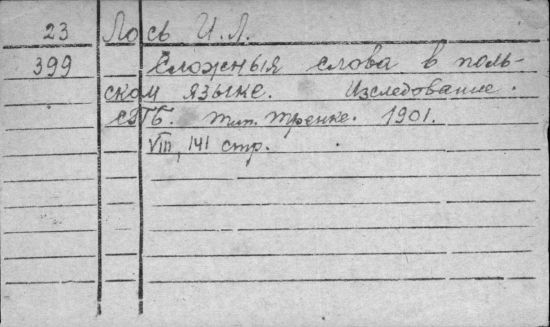 23 Лось И. Л.
399 Сложныя слова в поль-
ском языке. Изследование.
СПБ. Тип. Тренке. 1901.
VIII, 141 стр.